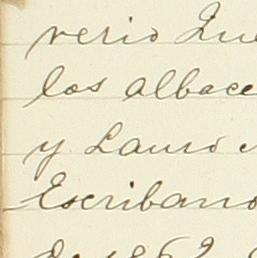 verio Que
los albace
y Lauro
Escribano
de 1862